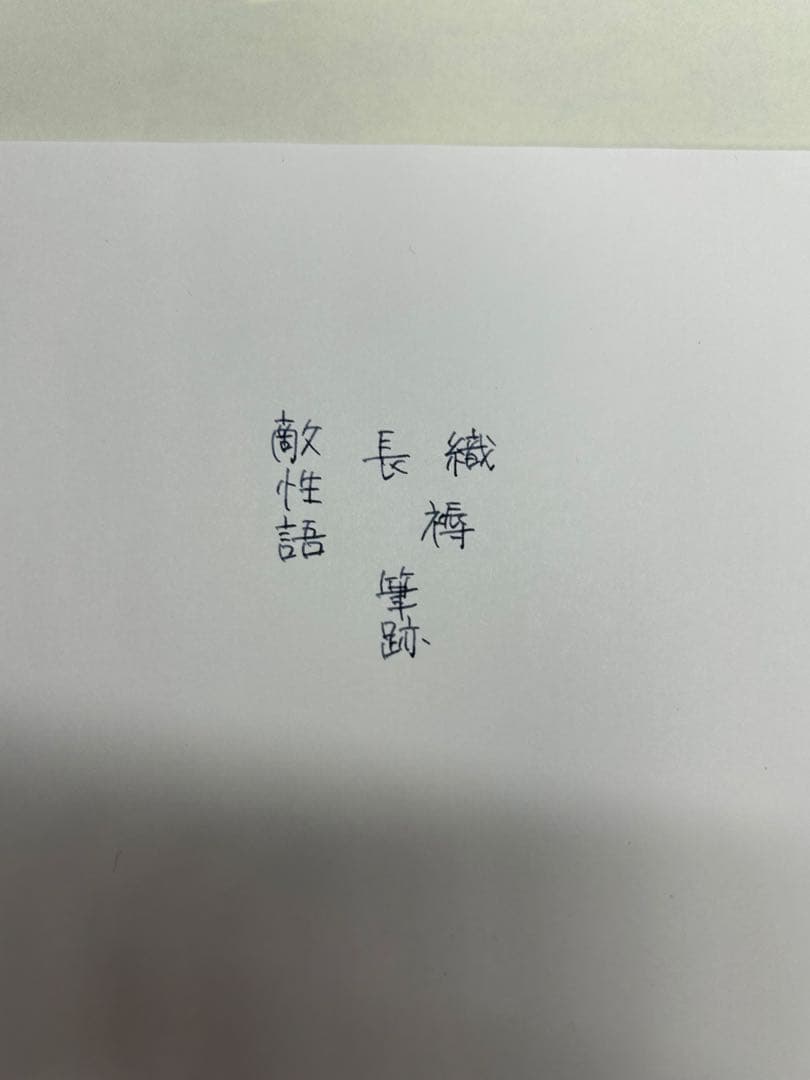 織
長
褥
筆跡
敵性語